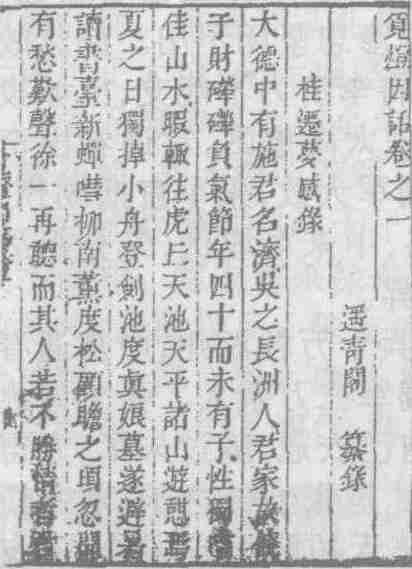 覓燈因話卷之一
遥青閣 纂錄
桂遷夢感錄
大德中有施君名濟吳之長洲人君家故饒
于財磥磥負氣節年四十而未有子性獨
佳山水暇輒往虎丘天池天平諸山遊憩焉
夏之日獨掉小舟登劍池度真娘墓遂避暑
讀書臺新蟬嘒柳南薰度松顧瞻之頃忽聞
有愁歎聲徐一再聽而其人若不勝情者